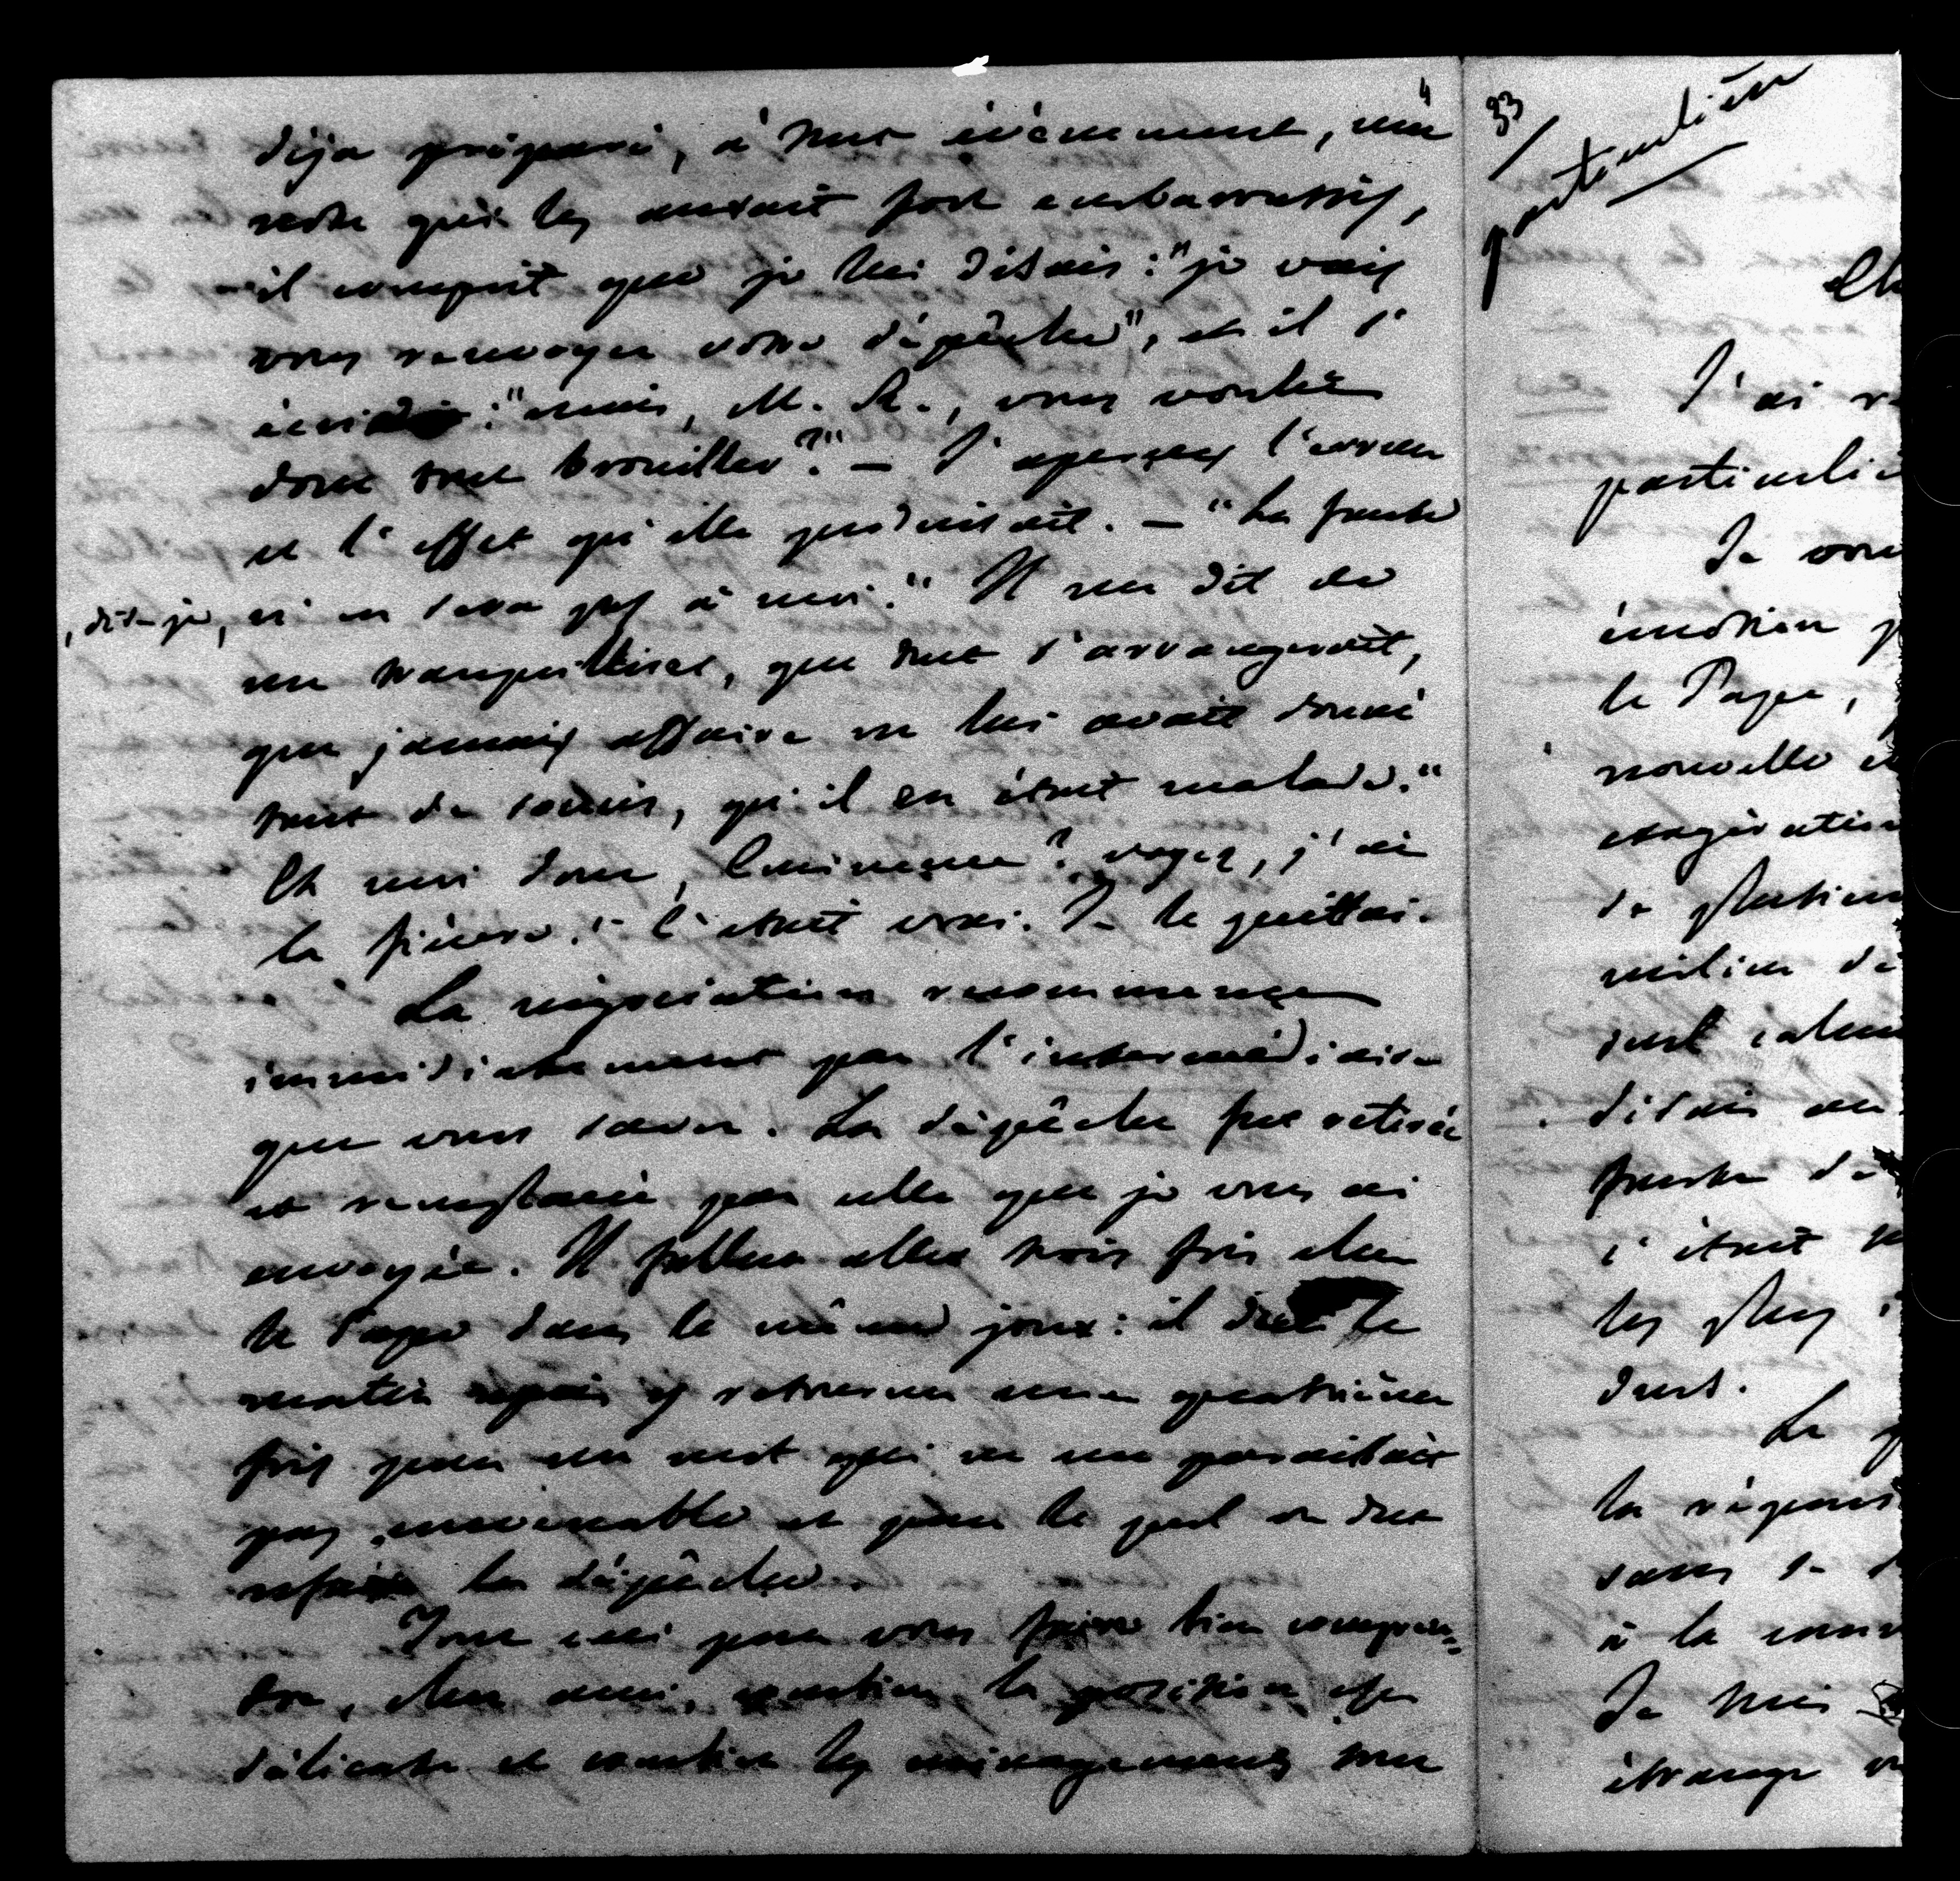 4
déja préparé, à tout évènement, une
note qui les aurait fort embarrassés,
il comprit que je lui disais: "je vais
vous renvoyer votre dépêche", et il s'
écria: "mais, M. R., vous voulez
donc tout brouiller?" — J'aperçus l'erreur
et l'effet qu'elle produisait. — "La faute
, dis-je, n'en sera pas à moi." Il me dit de
me tranquilliser, que tout s'arrangerait,
que jamais affaire ne lui avait donné
tant de soucis, qu'il en était malade."
Et moi donc, Eminence? voyez, j'ai
la fièvre." C'était vrai. Je le quittai.
La négociation recommença
immédiatement par l'intermédiaire
que vous savez. La dépêche fut retirée
et remplacée par celle que je vous ai
envoyée. Il fallut aller trois fois chez
le Pape dans le même jour: il dut le
matin y retourner une quatrième
fois pour un mot qui ne me paraissait
pas convenable et pour lequel on dut
refaire la dépêche.
Tout ceci pour vous faire bien compren=
dre, cher ami, combien la position est
délicate et combien les ménagements sont
33
particulière
J'ai
particuli
Je vou
émotion
le Pape,
nouvelle
exagération
de plusieurs
milieu de
disais au
faute de
c'était
les plus
dust.
La
la répons
sans
à la
Je
étrange